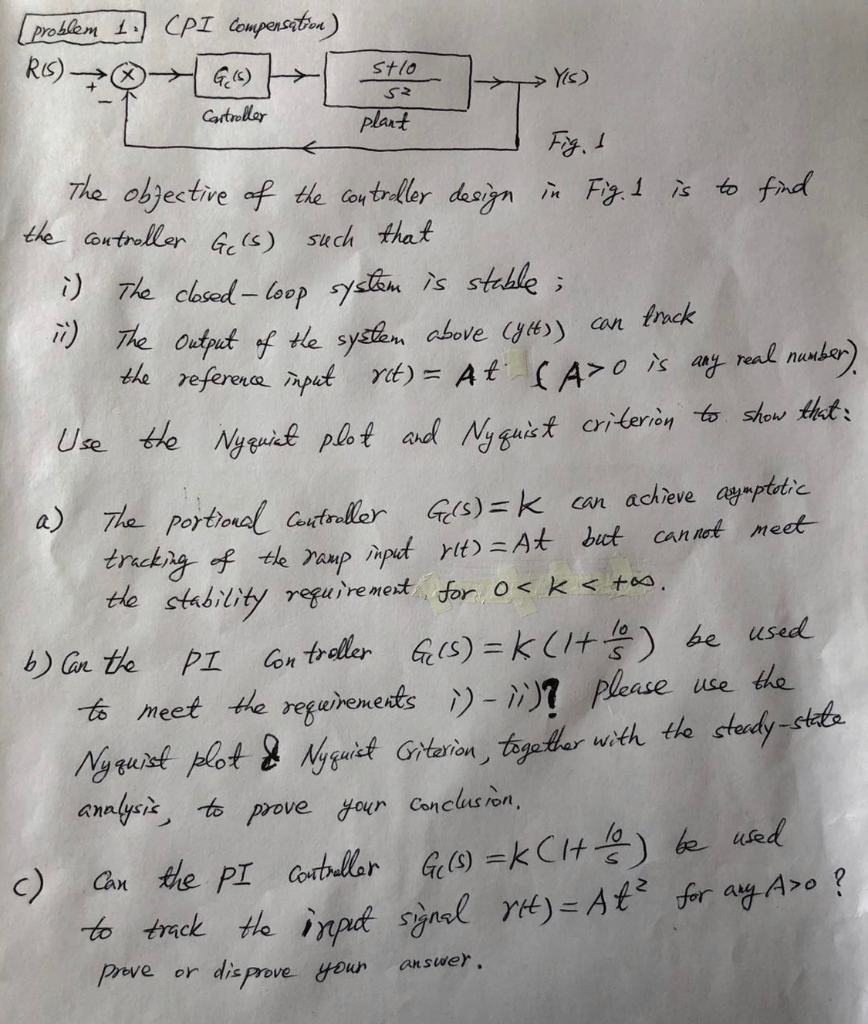 problem 1. (PI Compensation)
R(s) + - × Gc(s) s+10 / s² Y(s)
Controller plant
Fig. 1
The objective of the controller design in Fig. 1 is to find
the controller Gc(s) such that
i) The closed-loop system is stable ;
ii) The output of the system above (y(t)) can track
the reference input r(t) = At (A>0 is any real number).
Use the Nyquist plot and Nyquist criterion to show that:
a) The portional Controller Gc(s) = K can achieve asymptotic
tracking of the ramp input r(t) = At but cannot meet
the stability requirement for 0 < K < +∞.
b) Can the PI Controller Gc(s) = K (1+ 10/s) be used
to meet the requirements i) - ii)? please use the
Nyquist plot & Nyquist Criterion, together with the steady-state
analysis, to prove your conclusion.
c) Can the PI Controller Gc(s) = K (1+ 10/s) be used
to track the input signal r(t) = At² for any A>0 ?
prove or disprove your answer.